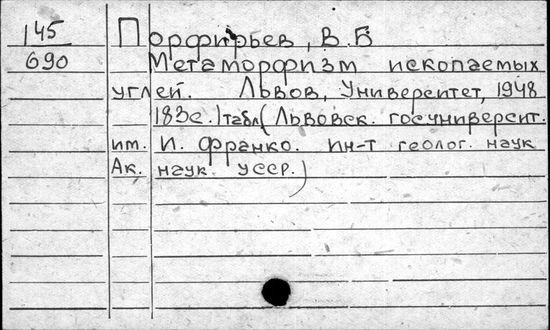 145 Порфирьев, В.Б
690 Метаморфизм ископаемых
углей. Львов, Университет, 1948
183с.,табл(Львовск. госуниверсит.
им. И. Франко. ин-т геолог. наук
Ак. наук УССР.)